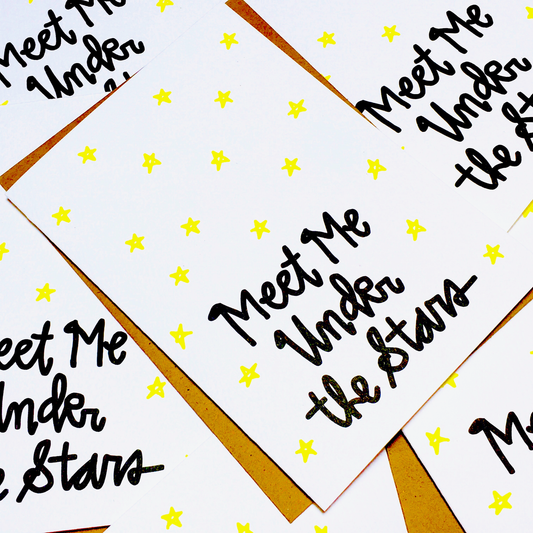 Meet Me
Under
Meet Me
Under
the Stars
Meet Me
Under
the Stars
eet Me
Under
e Stars
M